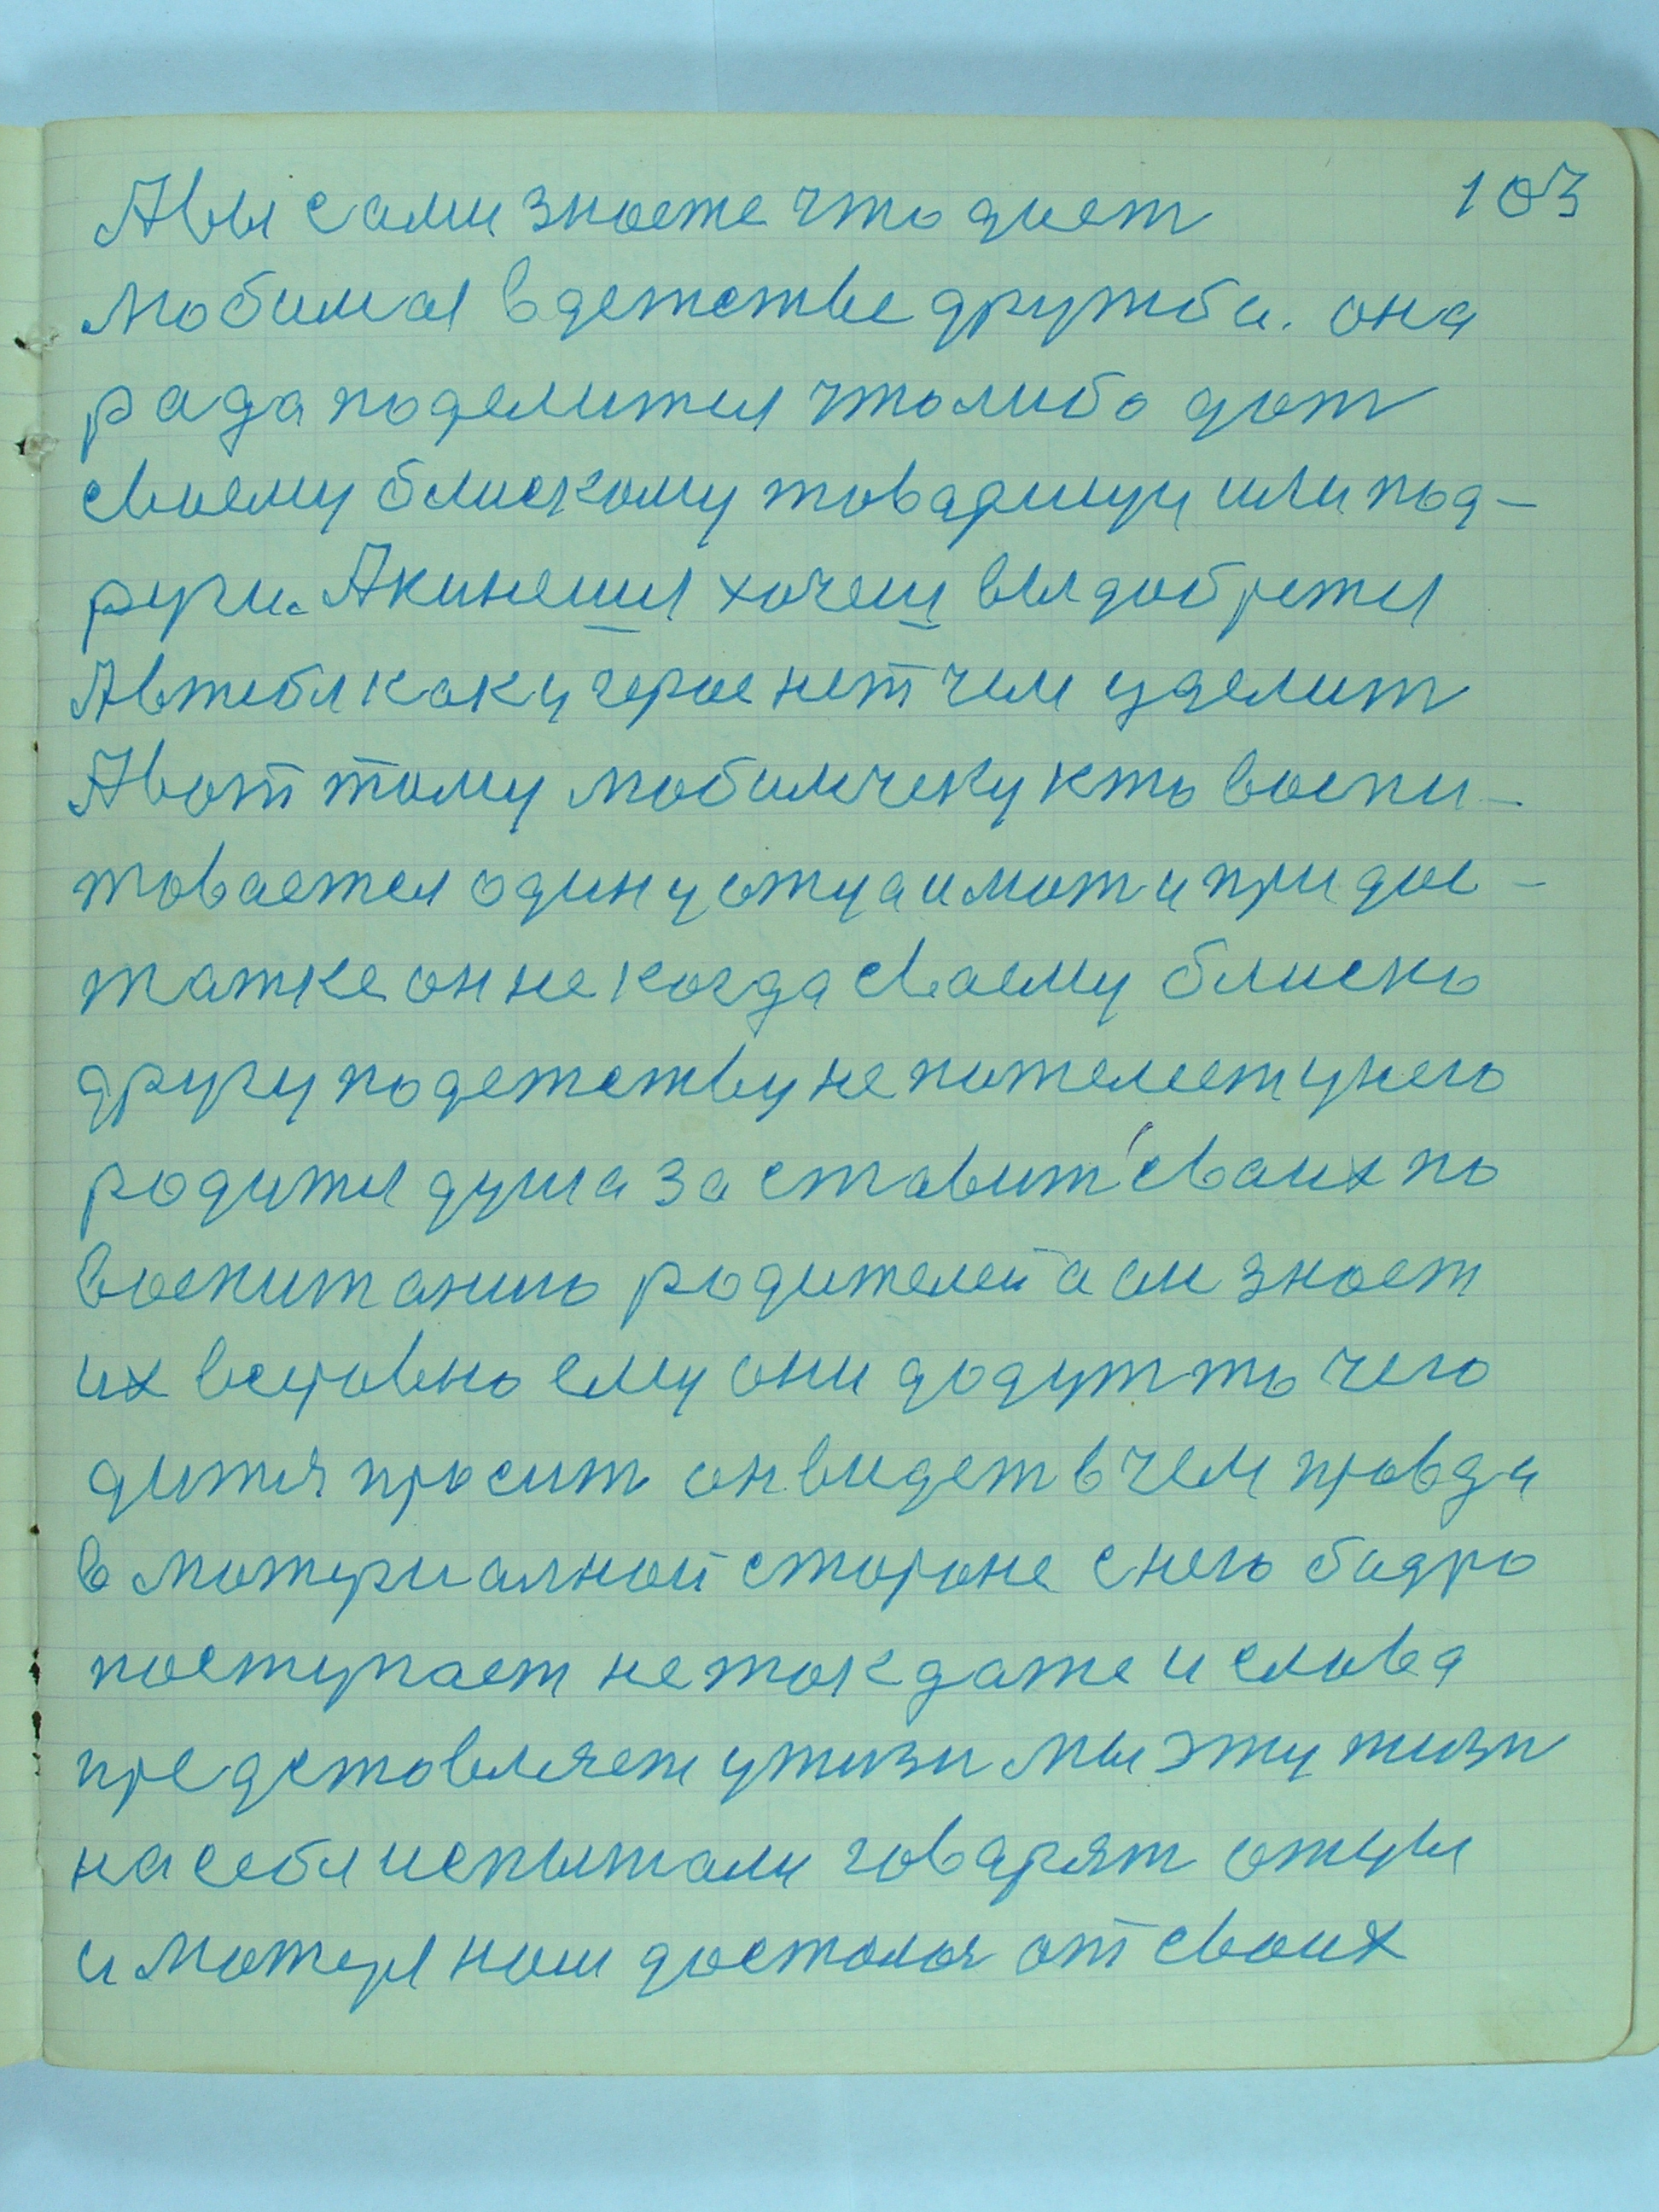 103
А вы сами знаете что дает
любимая в детстве дружба. она
рада поделится что либо дат
своему блискому товарищу или под-
руги. А кинешся хочеш выдобрется
А в тебя как у герое нет чем уделит
А вот тому любимчеку кто воспи-
товается один у отца и мат и при дос-
татке он не когда своему блиско
другу по детству не пожелеет у него
родится душа заставит своих по
воспитанию родителей а он знает
их всеровно ему они дадут то чего
дитя просит он видет в чем правда
в материалной стороне с него бадро
поступает не так даже и слова
предстовляет у жизн мы эту жизн
на себя испытали говарят отцы
и матеря нам досталоя от своих